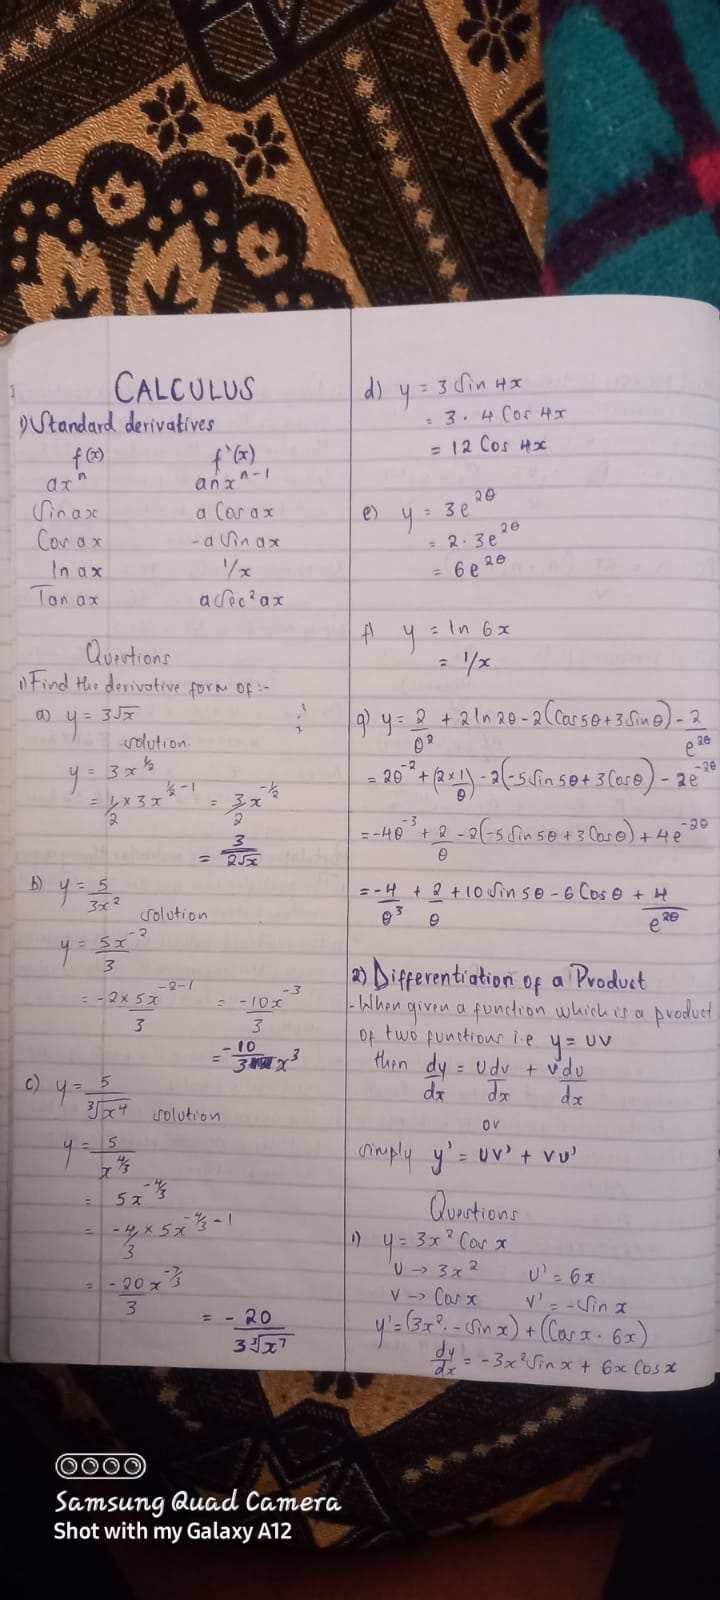 CALCULUS
1) Standard derivatives
f(x) f'(x)
ax^n anx^(n-1)
Sin ax a Cos ax
Cos ax -a Sin ax
ln ax 1/x
Tan ax a Sec² ax
Questions
1) Find the derivative form of:-
a) y = 3√x
solution.
y = 3x^(1/2)
= 1/2 × 3x^(1/2 - 1) = 3/2 x^(-1/2)
= 3/(2√x)
b) y = 5/(3x²)
solution
y = 5x^(-2)/3
= -2 × 5x^(-2-1)/3 = -10x^(-3)/3
= -10/(3x³)
c) y = 5/∛(x⁴)
solution
y = 5/x^(4/3)
= 5x^(-4/3)
= -4/3 × 5x^(-4/3 - 1)
= -20/3 x^(-7/3)
= -20/(3∛(x⁷))
d) y = 3 Sin 4x
= 3 · 4 Cos 4x
= 12 Cos 4x
e) y = 3e^(2θ)
= 2 · 3e^(2θ)
= 6e^(2θ)
f) y = ln 6x
= 1/x
g) y = 2/θ² + 2 ln 2θ - 2(Cos 5θ + 3 Sin θ) - 2/e^(2θ)
= 2θ^(-2) + (2×1/θ) - 2(-5 Sin 5θ + 3 Cos θ) - 2e^(-2θ)
= -4θ^(-3) + 2/θ - 2(-5 Sin 5θ + 3 Cos θ) + 4e^(-2θ)
= -4/θ³ + 2/θ + 10 Sin 5θ - 6 Cos θ + 4/e^(2θ)
2) Differentiation of a Product
- When given a function which is a product
of two functions i.e y = UV
then dy/dx = U dv/dx + V du/dx
or
simply y' = UV' + VU'
Questions
1) y = 3x² Cos x
U → 3x² U' = 6x
V → Cos x V' = -Sin x
y' = (3x² · -Sin x) + (Cos x · 6x)
dy/dx = -3x² Sin x + 6x Cos x
Samsung Quad Camera
Shot with my Galaxy A12